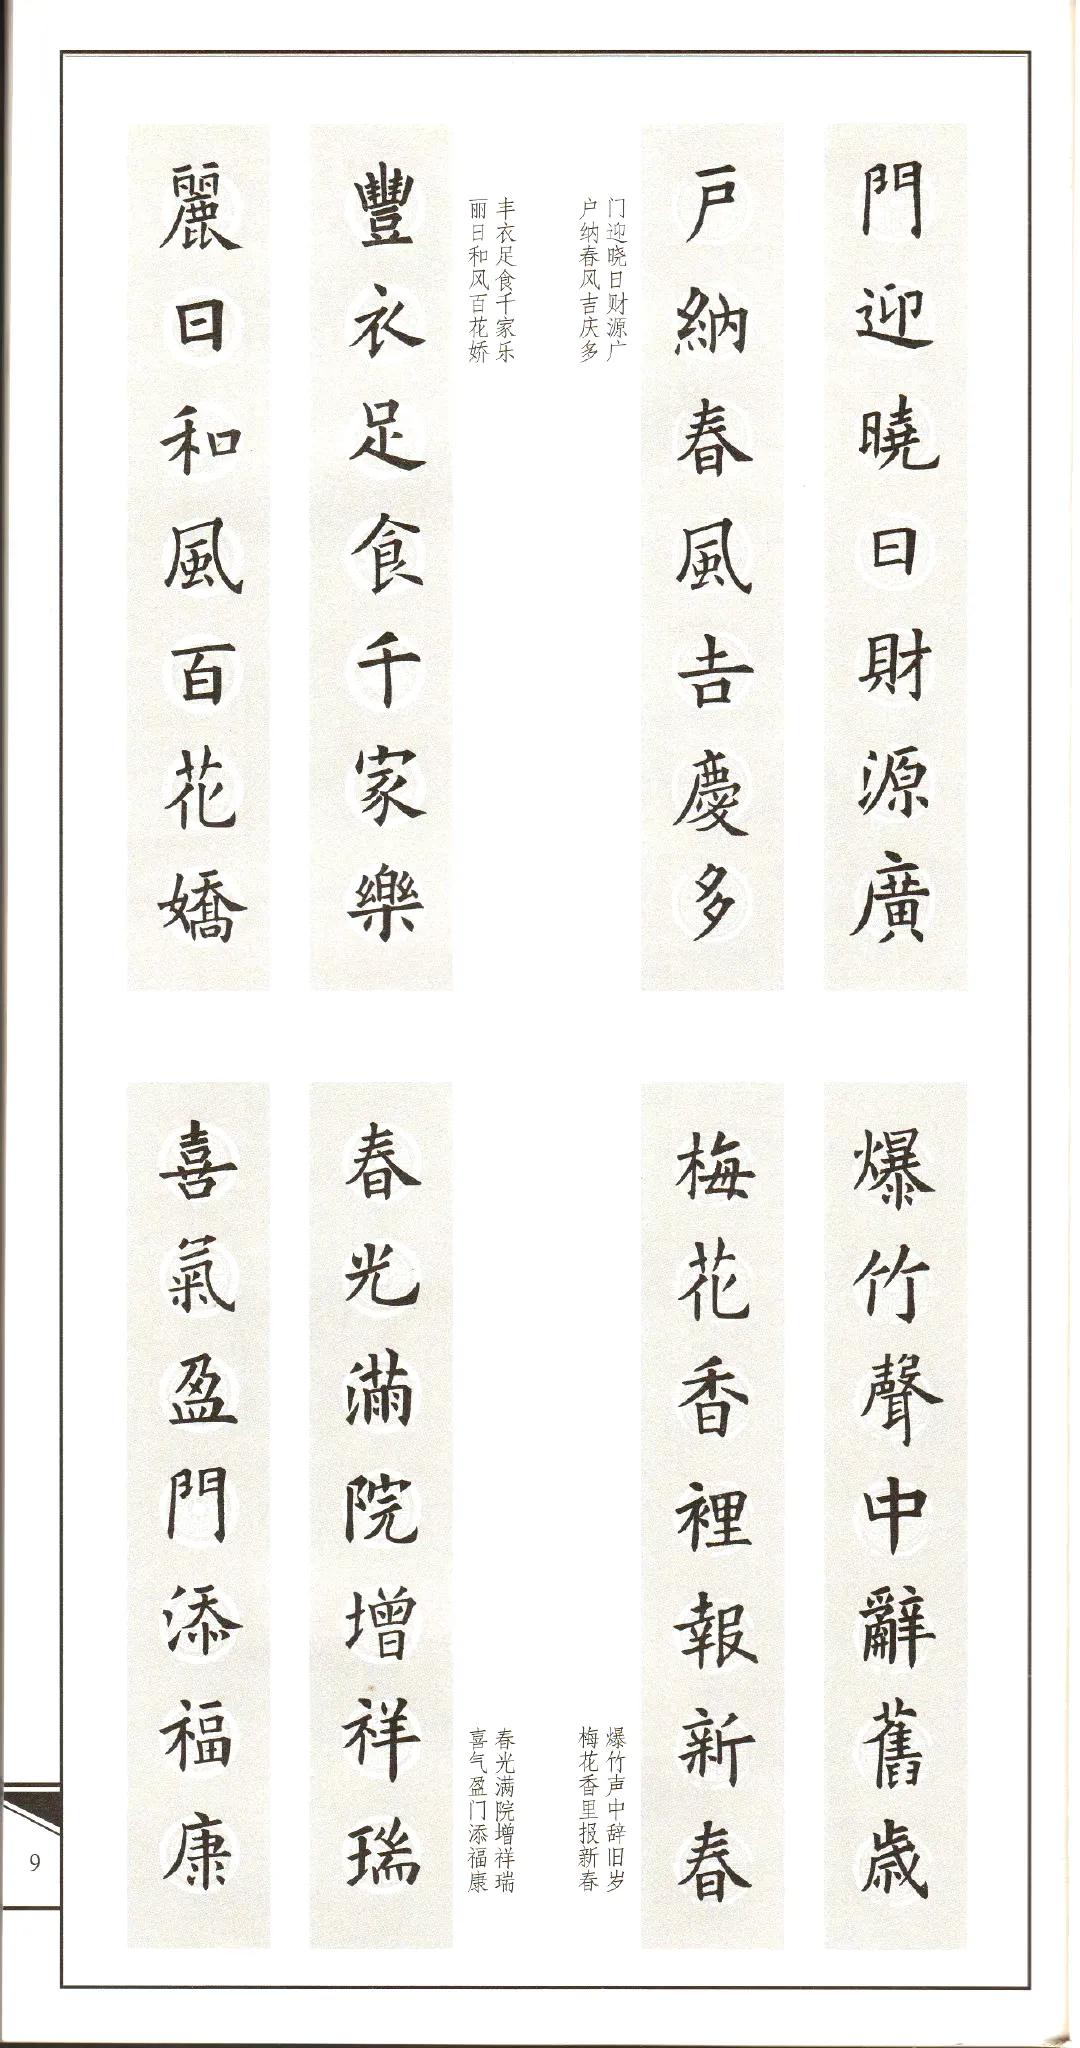 門迎曉日財源廣
戶納春風吉慶多
门迎晓日财源广
户纳春风吉庆多
豐衣足食千家樂
麗日和風百花嬌
丰衣足食千家乐
丽日和风百花娇
爆竹聲中辭舊歲
梅花香裡報新春
爆竹声中辞旧岁
梅花香里报新春
春光滿院增祥瑞
喜氣盈門添福康
春光满院增祥瑞
喜气盈门添福康
9